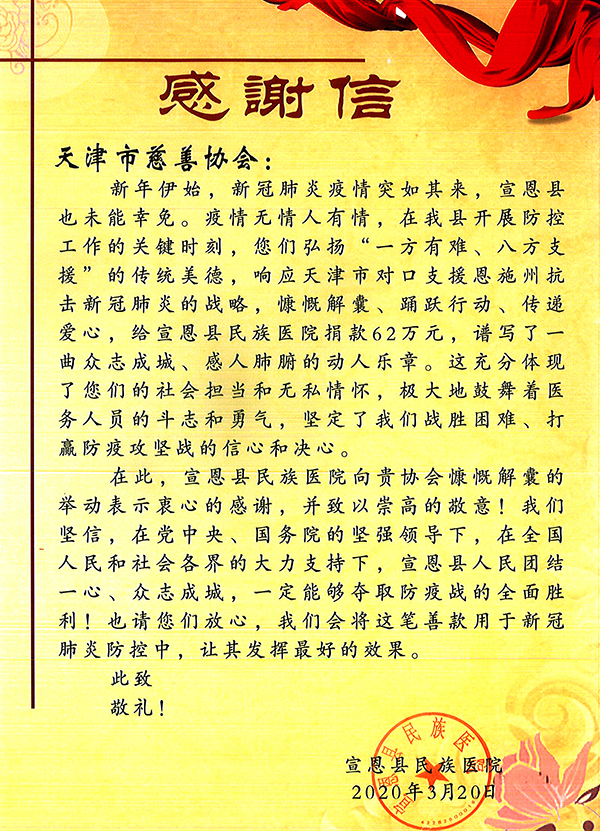 感謝信
天津市慈善协会：
新年伊始，新冠肺炎疫情突如其来，宣恩县
也未能幸免。疫情无情人有情，在我县开展防控
工作的关键时刻，您们弘扬“一方有难、八方支
援”的传统美德，响应天津市对口支援恩施州抗
击新冠肺炎的战略，慷慨解囊、踊跃行动、传递
爱心，给宣恩县民族医院捐款62万元，谱写了一
曲众志成城、感人肺腑的动人乐章。这充分体现
了您们的社会担当和无私情怀，极大地鼓舞着医
务人员的斗志和勇气，坚定了我们战胜困难、打
赢防疫攻坚战的信心和决心。
在此，宣恩县民族医院向贵协会慷慨解囊的
举动表示衷心的感谢，并致以崇高的敬意！我们
坚信，在党中央、国务院的坚强领导下，在全国
人民和社会各界的大力支持下，宣恩县人民团结
一心、众志成城，一定能够夺取防疫战的全面胜
利！也请您们放心，我们会将这笔善款用于新冠
肺炎防控中，让其发挥最好的效果。
此致
敬礼！
宣恩县民族医院
2020年3月20日
宣恩县民族医院